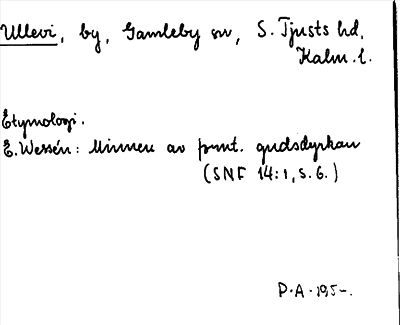 Ullevi, by, Gamleby sn, S. Tjusts hd,
Kalm. l.
Etymologi.
E. Wessén: Minnen av fornt. gudsdyrkan
(SNF 14:1, s. 6.)
P.A. 195-.